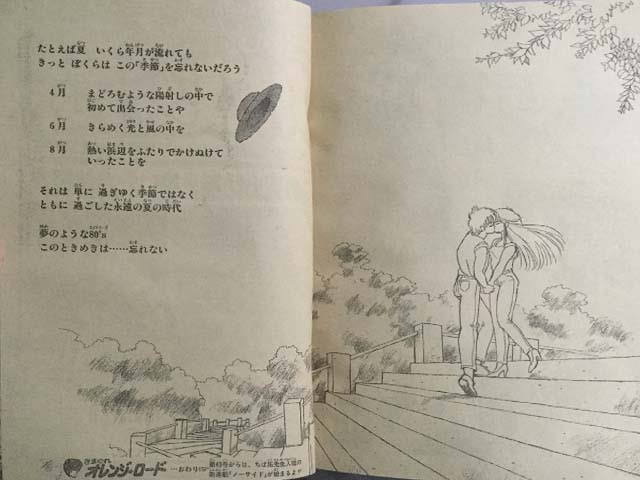 たとえば夏　いくら年月が流れても
きっと　ぼくらは　この「季節」を忘れないだろう
4月　まどろむような陽射しの中で
初めて出会ったことや
6月　きらめく光と風の中を
8月　熱い浜辺をふたりでかけぬけて
いったことを
それは　単に　過ぎゆく季節ではなく
ともに　過ごした永遠の夏の時代
夢のような80's
このときめきは……忘れない
きまぐれ
オレンジ・ロード
…おわり
第43号からは、ちば拓先生入魂の
新連載「ノーサイド」が始まるよ!!